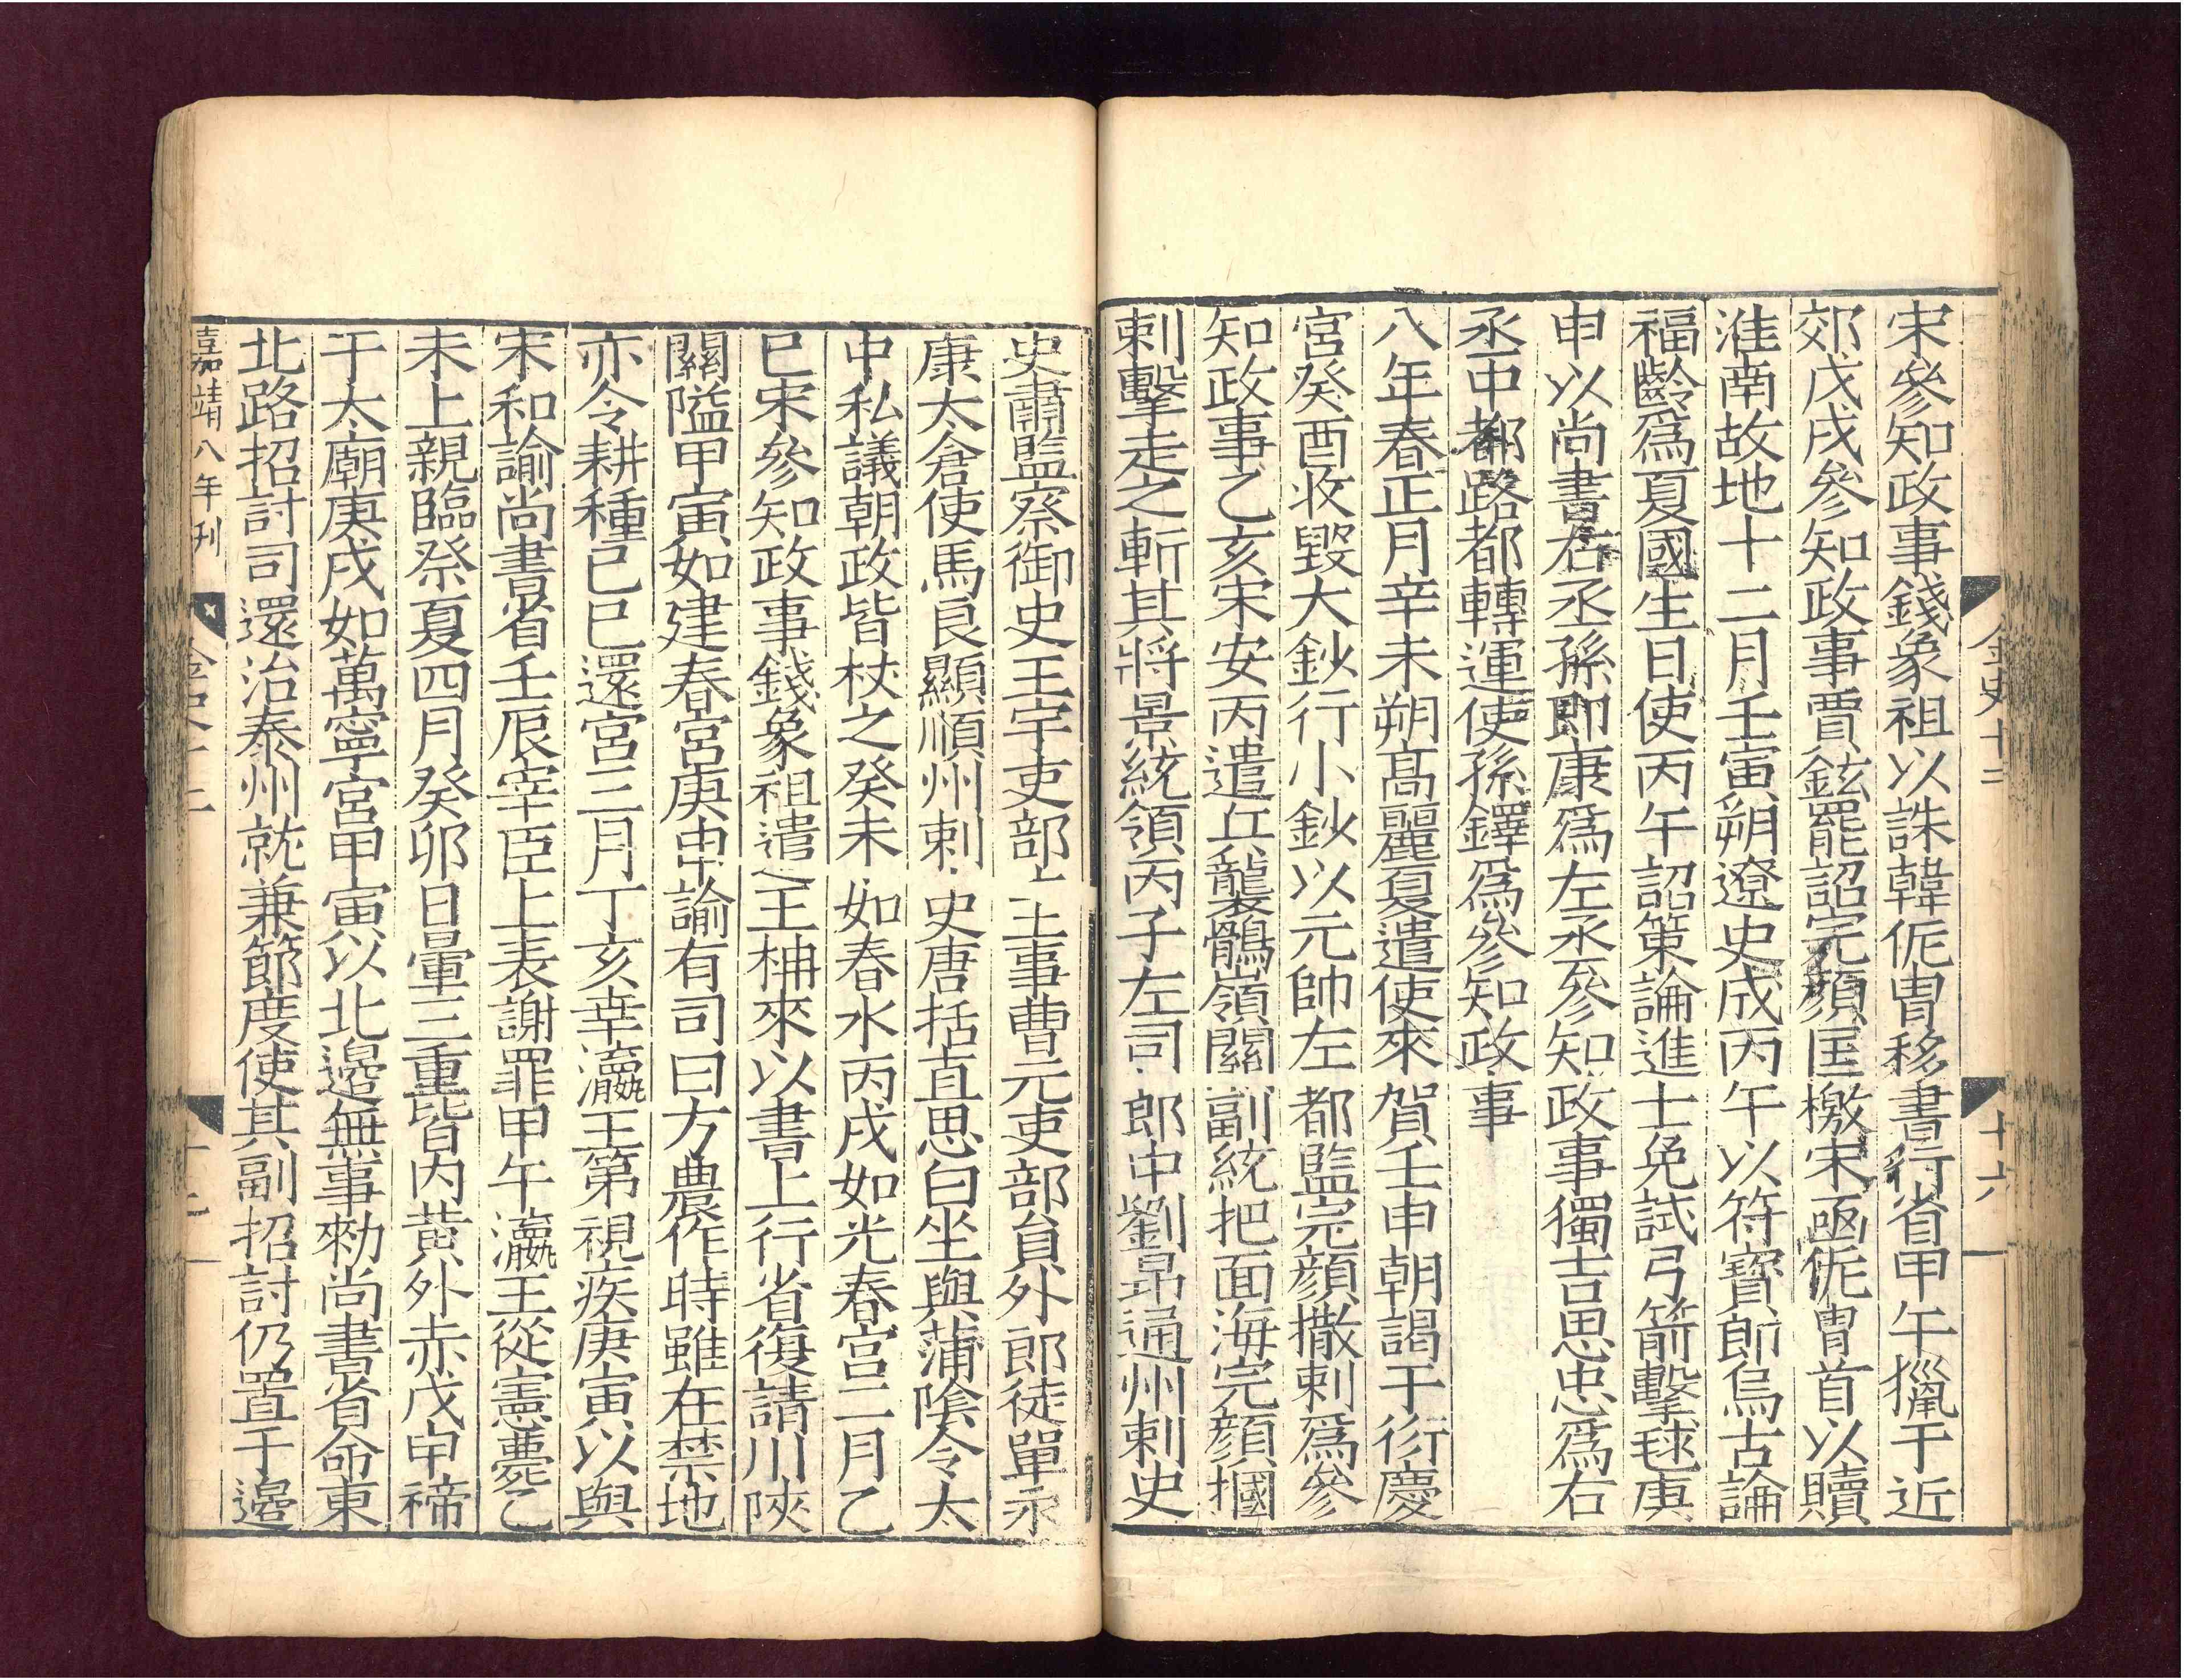 金史十二
十六
宋參知政事錢象祖以誅韓侂冑移書行省甲午獵于近
郊戊戌參知政事賈鉉罷詔完顏匡檄宋函侂冑首以贖
淮南故地十二月壬寅朔遼史成丙午以符寶郎烏古論
福齡爲夏國生日使丙午詔策論進士免試弓箭擊毬庚
申以尚書右丞孫即康爲左丞參知政事獨吉思忠爲右
丞中都路都轉運使孫鐸爲參知政事
八年春正月辛未朔高麗夏遣使來賀壬申朝謁于衍慶
宮癸酉收毀大鈔行小鈔以元帥左都監完顏撒剌爲參
知政事乙亥宋安丙遣兵襲鶻嶺關副統把面海完顏摑
剌擊走之斬其將景統領丙子左司郎中劉昂通州刺史
史肅監察御史王宇吏部主事曹元吏部員外郎徒單永
康太倉使馬良顯順州刺史唐括直思白坐與蒲陰令太
中私議朝政皆杖之癸未如春水丙戌如光春宮二月乙
巳宋參知政事錢象祖遣王柟來以書上行省復請川陝
關隘甲寅如建春宮庚申諭有司曰方農作時雖在禁地
亦令耕種己巳還宮三月丁亥幸瀛王第視疾庚寅以與
宋和諭尚書省壬辰宰臣上表謝罪甲午瀛王從憲薨乙
未上親臨祭夏四月癸卯日暈三重皆內黃外赤戊申禘
于太廟庚戌如萬寧宮甲寅以北邊無事勑尚書省命東
北路招討司還治泰州就兼節度使其副招討仍置于邊
嘉靖八年刊